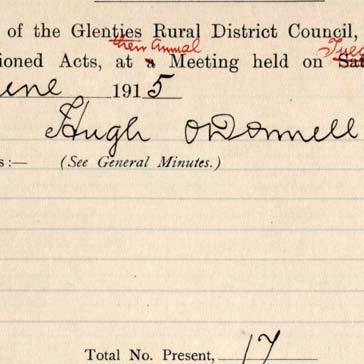 of the Glenties Rural District Council,
their Annual
ioned Acts, at a Meeting held on
une 1915
Hugh O'Donnell
s:— (See General Minutes.)
Total No. Present, 17